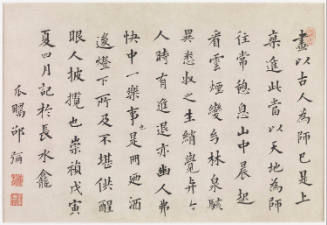 畫以古人為師已是上
乘進此當以天地為師
往常憩息山中晨起
看雲煙變與林泉賦
異之生綃覺與今
人時有進退亦幽人弗
快中一樂事也是冊迺酒
邊燈下所及不堪供醒
眼人披攬也崇禎戊寅
夏四月記於長水龕
瓜疇邵彌